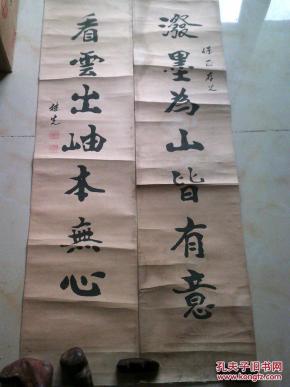 潑墨為山皆有意
看雲出岫本無心
孔夫子旧书网